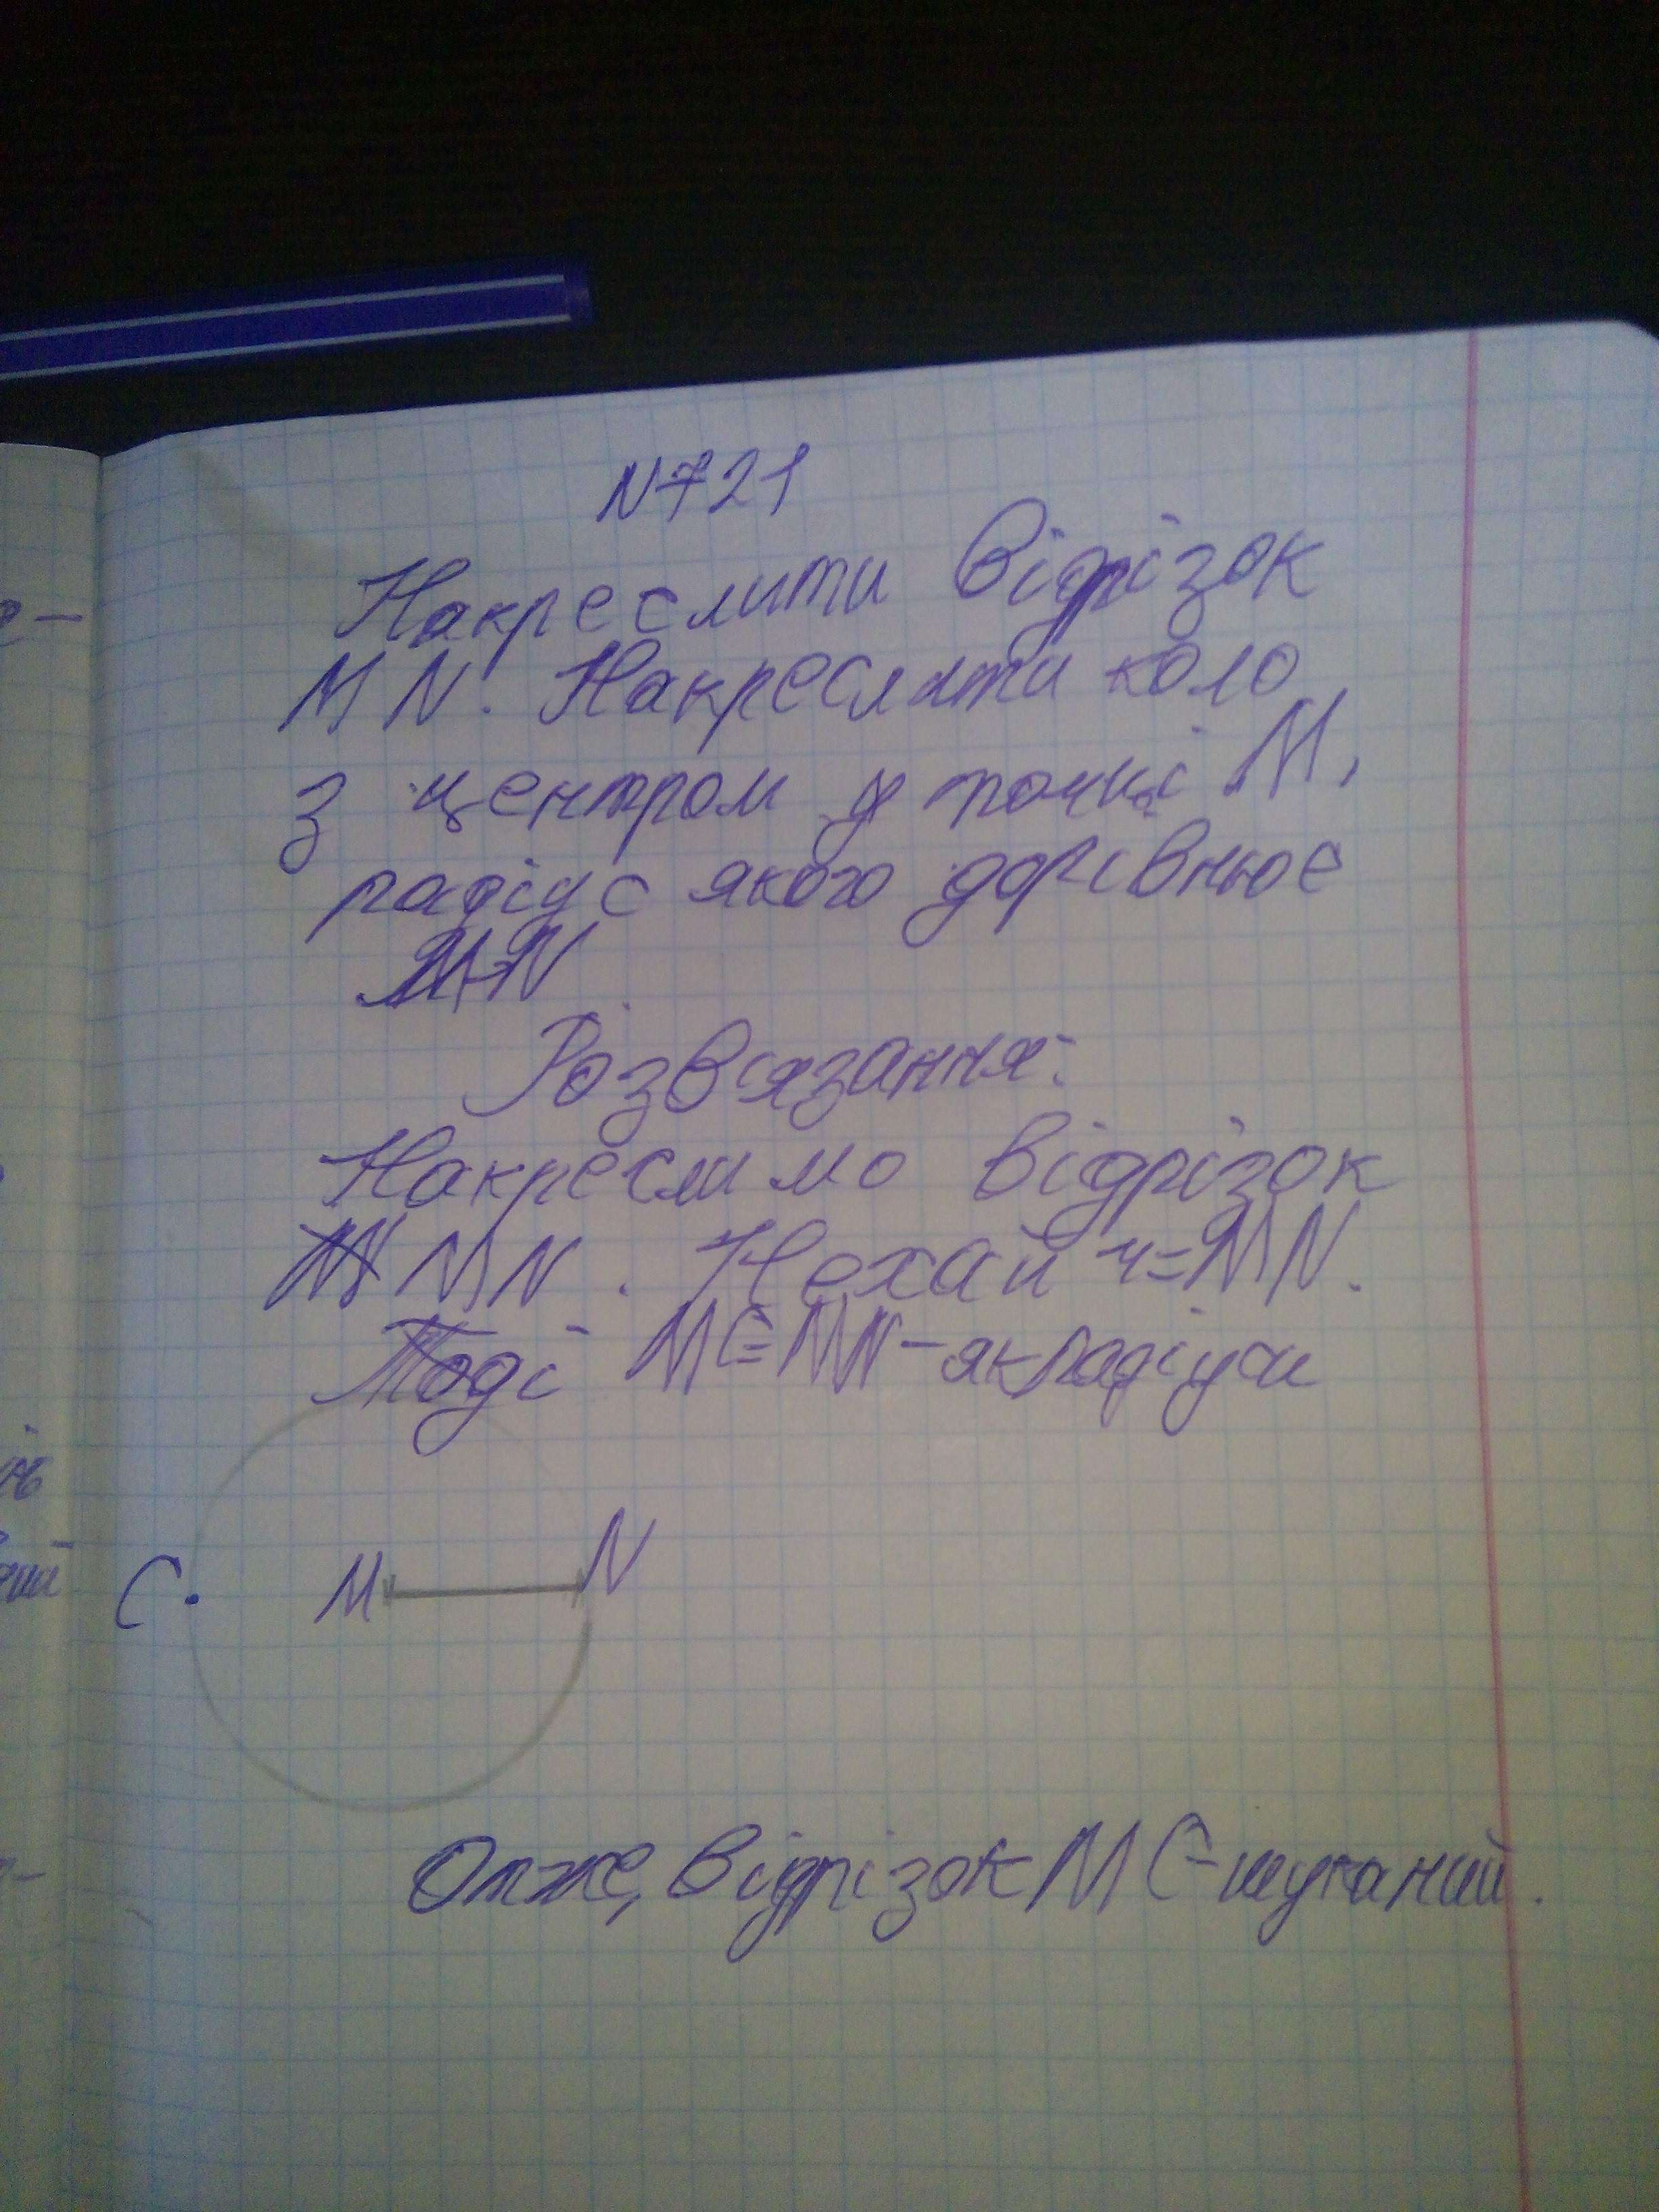 N721
Накреслити відрізок
MN. Накреслити коло
з центром у точці M,
радіус якого дорівнює
MN
Розв'язання:
Накреслимо відрізок
MN. Нехай ч=MN.
Тоді MC=MN-як радіуси
C. M N
Отже, відрізок MC-шуканий.